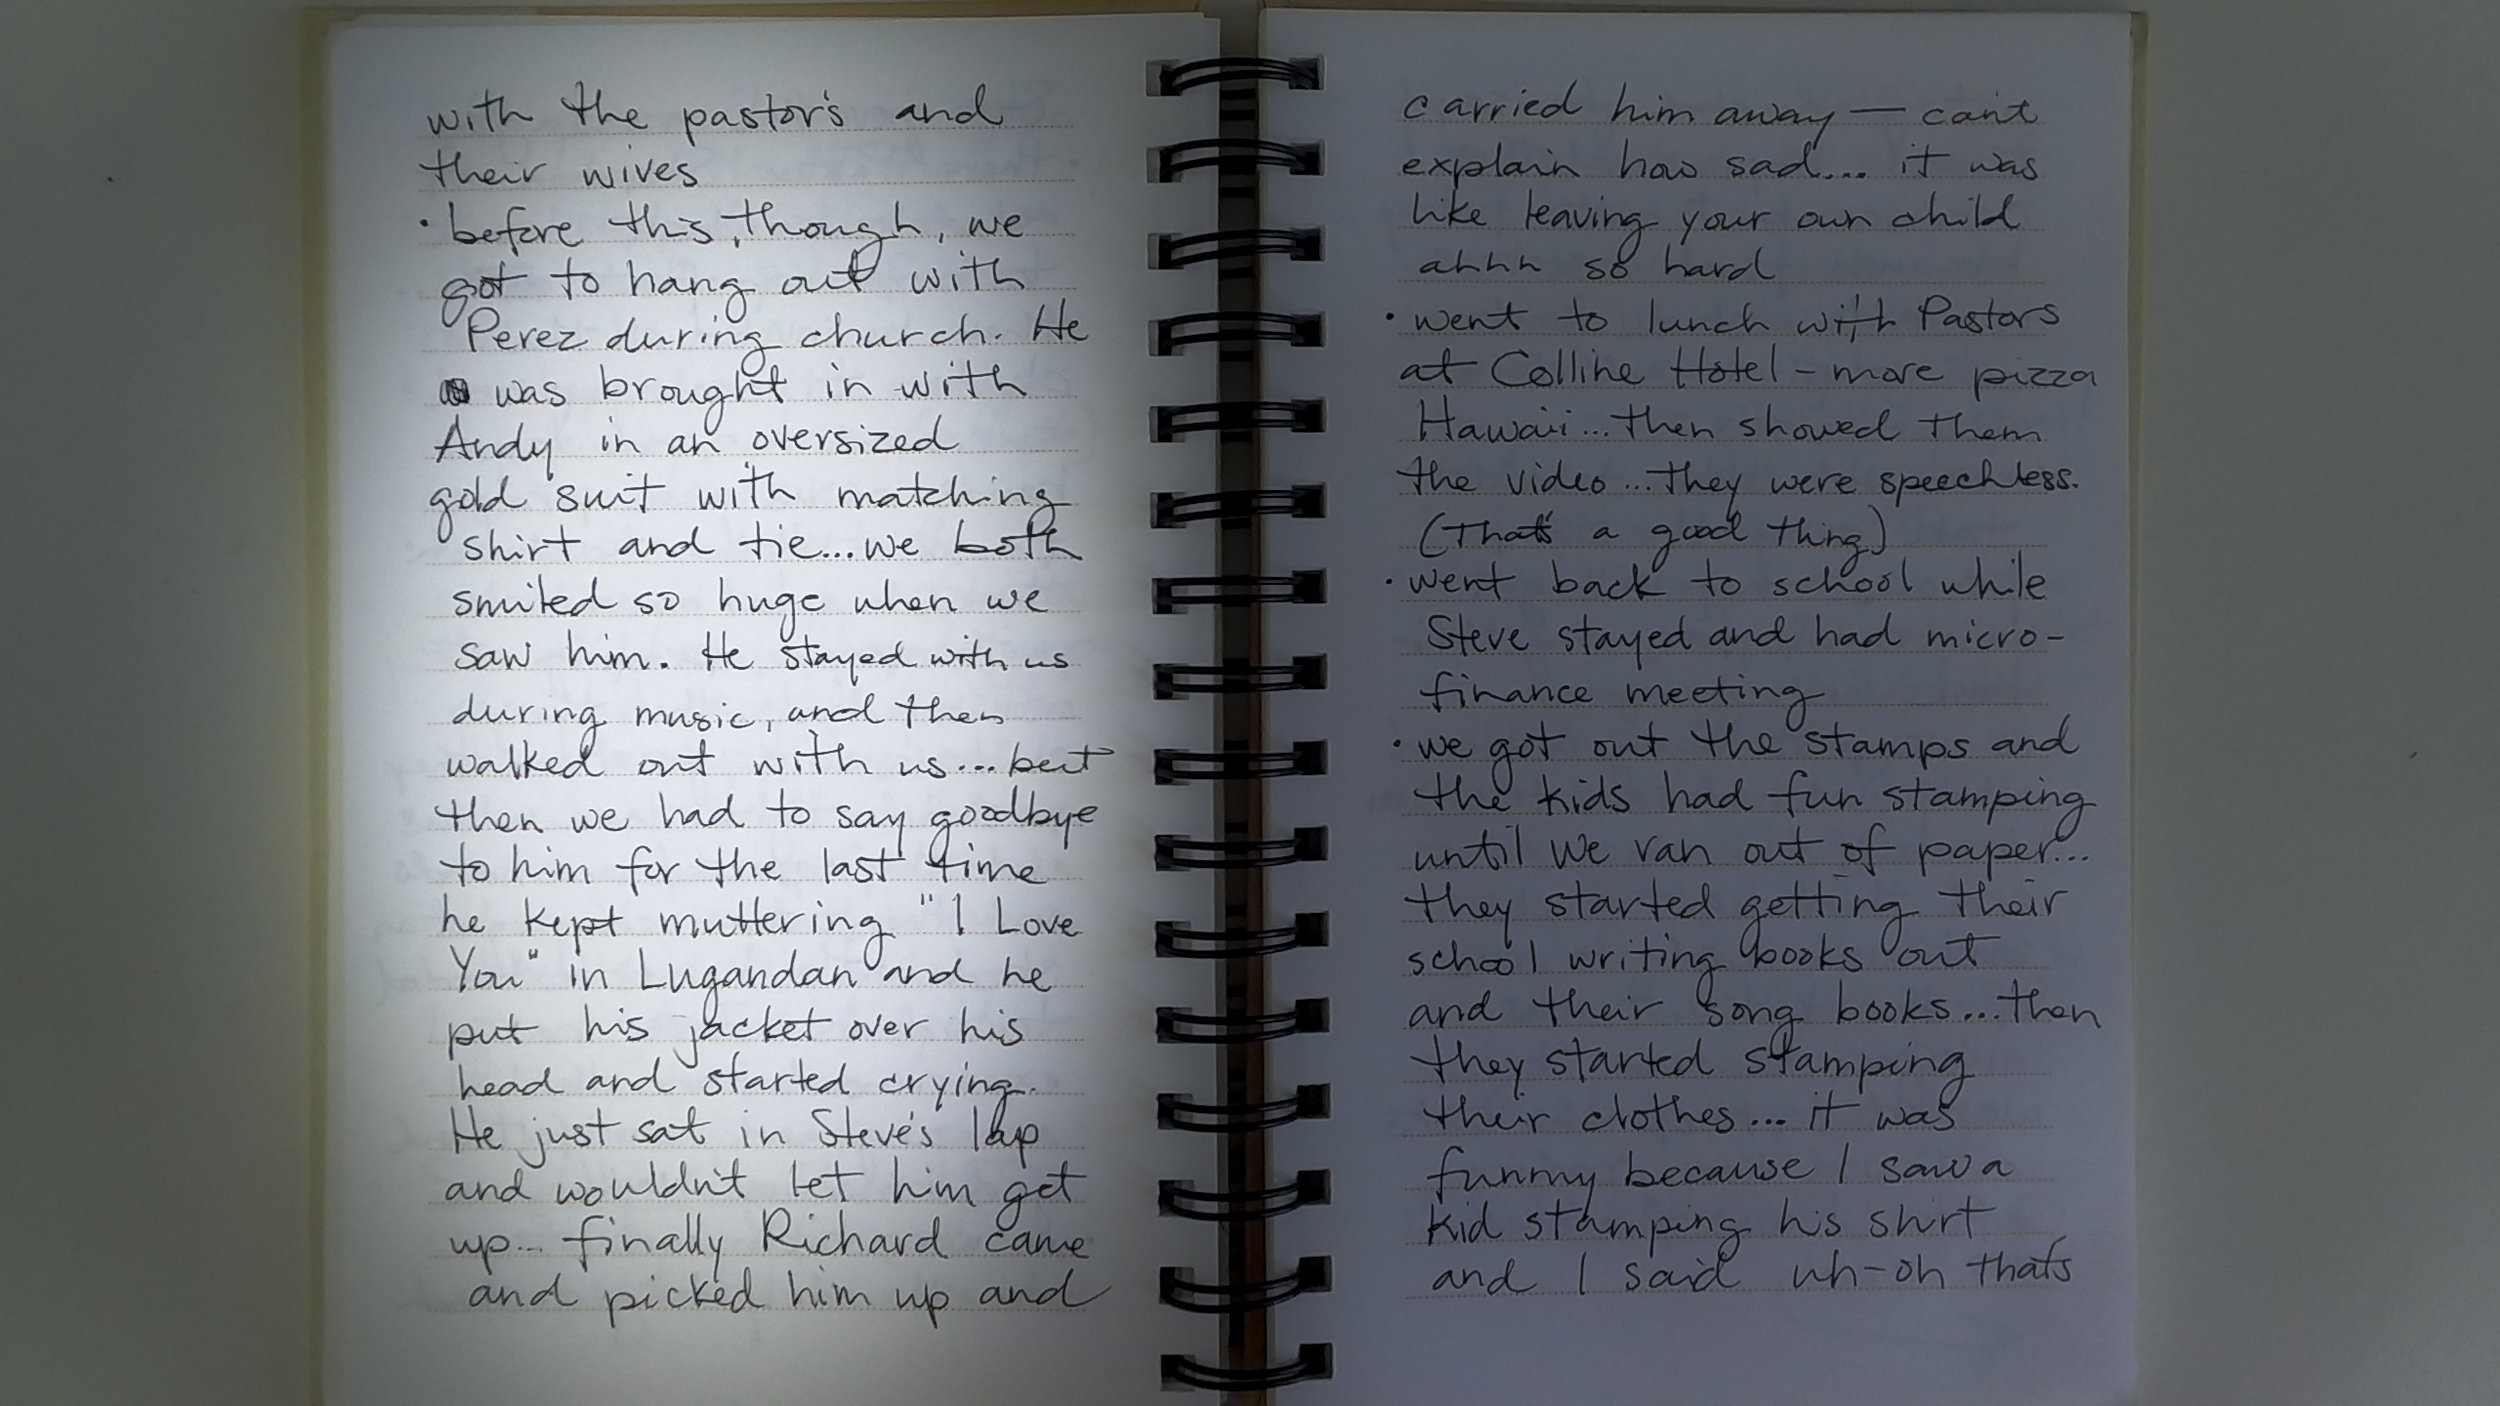 with the pastor's and
their wives
• before this, though, we
got to hang out with
Perez during church. He
was brought in with
Andy in an oversized
gold suit with matching
shirt and tie...we both
smiled so huge when we
saw him. He stayed with us
during music, and then
walked out with us...but
then we had to say goodbye
to him for the last time
he kept muttering "I Love
You" in Lugandan and he
put his jacket over his
head and started crying.
He just sat in Steve's lap
and wouldn't let him get
up... finally Richard came
and picked him up and
carried him away — can't
explain how sad.... it was
like leaving your own child
ahhh so hard
• went to lunch with Pastors
at Colline Hotel - more pizza
Hawaii...then showed them
the video...they were speechless.
(That's a good thing)
• went back to school while
Steve stayed and had micro-
finance meeting
• we got out the stamps and
the kids had fun stamping
until we ran out of paper...
they started getting their
school writing books out
and their song books...then
they started stamping
their clothes... it was
funny because I saw a
kid stamping his shirt
and I said uh-oh that's